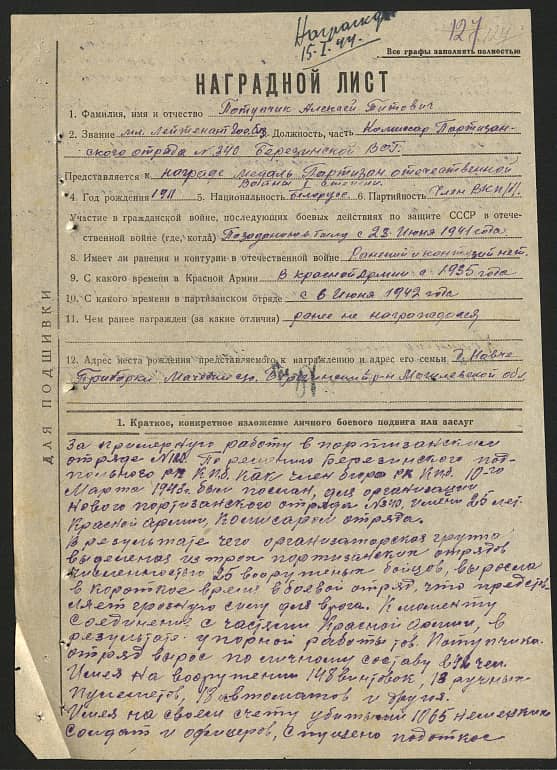 Награжден
15-I.44.
127
Все графы заполнять полностью
НАГРАДНОЙ ЛИСТ
1. Фамилия, имя и отчество Потупчик Алексей Титович
2. Звание мл. Лейтенант 3. Должность, часть Комисар Партизан-
ского отряда № 340 Березинской ВОГ.
Представляется к награде медаль Партизан отечественной
Войны I степени.
4. Год рождения 1911 5. Национальность белорус 6. Партийность Член ВКП/б/.
Участие в гражданской войне, последующих боевых действиях по защите СССР в отече-
ственной войне (где, когда) с 23 Июня 1941 года
8. Имеет ли ранения и контузии в отечественной войне Ранений и контузий нет.
9. С какого времени в Красной Армии В красной Армии с 1935 года
10. С какого времени в партизанском отряде с 6 Июня 1942 года
11. Чем ранее награжден (за какие отличия) ранее не награждался
12. Адрес места рождения представляемого к награждению и адрес его семьи Д.
Приборки Березинский р-н Могилевской обл
ДЛЯ ПОДШИВКИ
1. Краткое, конкретное изложение личного боевого подвига или заслуг
За примерную работу в партизанском
отряде По решению Березинского под-
польного РК КПБ. Как член бюро РК КПБ. 10-го
Марта 1943г. был послан, для организации
Нового партизанского отряда №340, имени 25 лет.
Красной армии, Комисаром отряда.
В результате чего организаторская група
выделеная из трех партизанских отрядов
численностью 25 вооруженых бойцов, выросла
в короткое время в боевой отряд, что представ-
ляет грозную силу для врага. К моменту
Соединения с частями Красной Армии, в
результате упорной работы тов. Потупчика.
отряд вырос по личному составу в чел.
Имея на вооружении 148 винтовок, 13 ручных
Пулеметов, 13 автоматов и другое.
Имея на своем счету убитыми 1065 немецких
Солдат и офицеров, Спущено подоткос